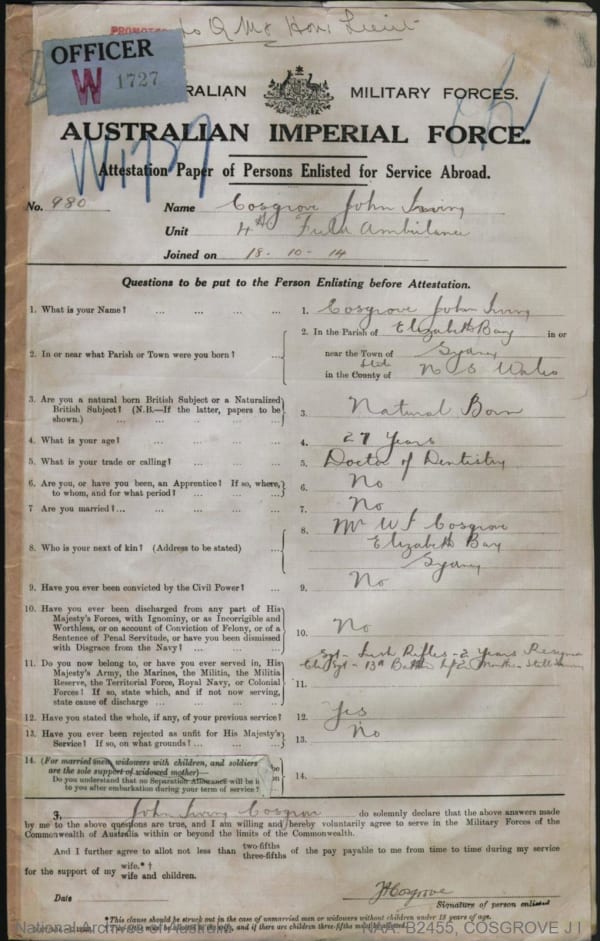 PROMOTED to Q Mr Hon. Lieut
OFFICER
W 1727
AUSTRALIAN MILITARY FORCES.
AUSTRALIAN IMPERIAL FORCE.
W1727
Attestation Paper of Persons Enlisted for Service Abroad.
No. 980 Name Cosgrove John Irving
Unit 4th Field Ambulance
Joined on 18-10-14
Questions to be put to the Person Enlisting before Attestation.
1. What is your Name? ... ... ... ... 1. Cosgrove John Irving
2. In or near what Parish or Town were you born? ... 2. In the Parish of Elizabeth Bay in or
near the Town of Sydney
State
in the County of N S Wales
3. Are you a natural born British Subject or a Naturalized
British Subject? (N.B.—If the latter, papers to be
shown.) ... 3. Natural Born
4. What is your age? ... 4. 27 Years
5. What is your trade or calling? ... 5. Doctor of Dentistry
6. Are you, or have you been, an Apprentice? If so, where,
to whom, and for what period? ... 6. No
7 Are you married? ... 7. No
8. Who is your next of kin? (Address to be stated) ... 8. Mr W J Cosgrove
Elizabeth Bay
Sydney
9. Have you ever been convicted by the Civil Power? ... 9. No
10. Have you ever been discharged from any part of His
Majesty's Forces, with Ignominy, or as Incorrigible and
Worthless, or on account of Conviction of Felony, or of a
Sentence of Penal Servitude, or have you been dismissed
with Disgrace from the Navy? ... 10. No
11. Do you now belong to, or have you ever served in, His
Majesty's Army, the Marines, the Militia, the Militia
Reserve, the Territorial Force, Royal Navy, or Colonial
Forces? If so, state which, and if not now serving,
state cause of discharge ... 11. Sgt - Irish Rifles - 2 Years Resigned
Sgt - 13th Battn months still
12. Have you stated the whole, if any, of your previous service? 12. Yes
13. Have you ever been rejected as unfit for His Majesty's
Service? If so, on what grounds? ... 13. No
14. (For married men, widowers with children, and soldiers
are the sole support of widowed mother)—
Do you understand that no Separation Allowance will be
to you after embarkation during your term of service? 14.
I, John Irving Cosgrove do solemnly declare that the above answers made
by me to the above questions are true, and I am willing and hereby voluntarily agree to serve in the Military Forces of the
Commonwealth of Australia within or beyond the limits of the Commonwealth.
And I further agree to allot not less than two-fifths
three-fifths of the pay payable to me from time to time during my service
for the support of my wife.* †
wife and children.
Date
JI Cosgrove
Signature of person enlisted
*This clause should be struck out in the case of unmarried men or widowers without children under 18 years of age.
National Archives of Australia NAA: B2455, COSGROVE J I